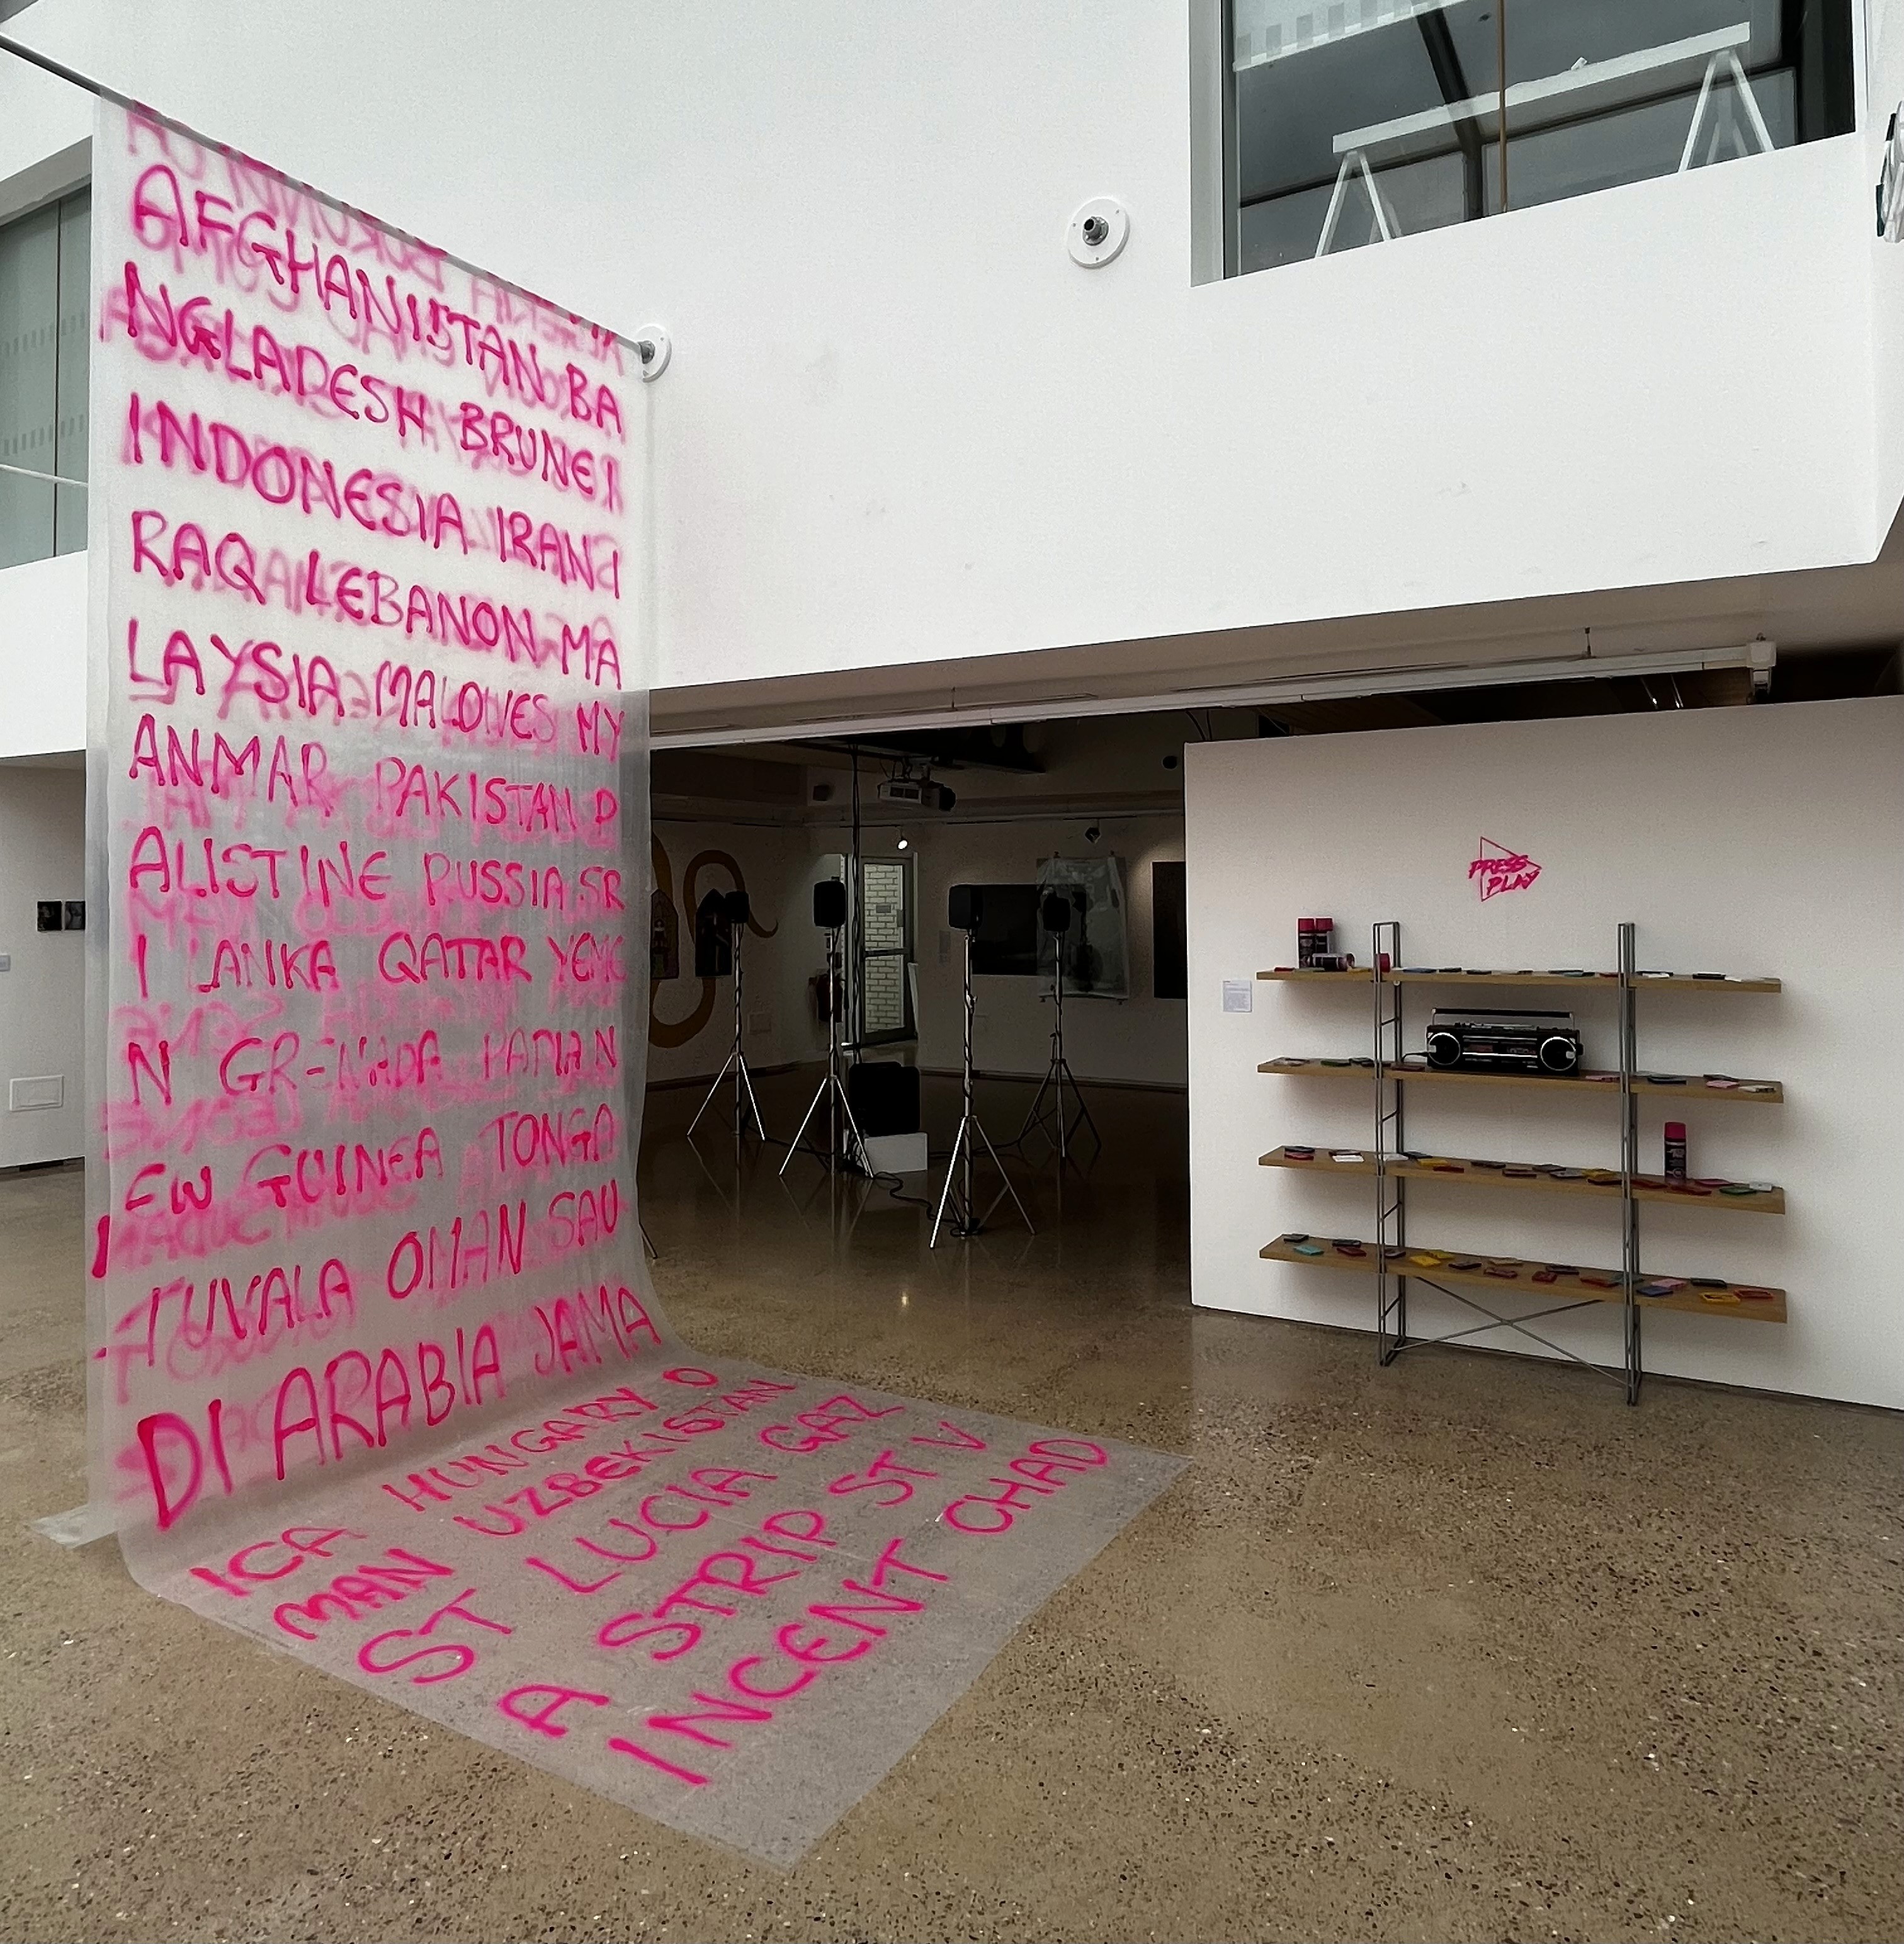 AFGHANISTAN BA
NGLADESH BRUNEI
INDONESIA IRAN I
RAQ LEBANON MA
LAYSIA MALDIVES MY
ANMAR PAKISTAN P
ALISTINE RUSSIA SR
I LANKA QATAR YEME
N GRENADA PAPUA N
EW GUINEA TONGA
TUVALA OMAN SAU
DI ARABIA JAMA
ICA HUNGARY O
MAN UZBEKISTAN
ST LUCIA GAZ
A STRIP ST V
INCENT CHAD
PRESS
PLAY